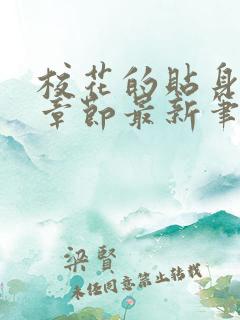 校花的贴身
章节最新笔
梁贤
未任同意禁止转载